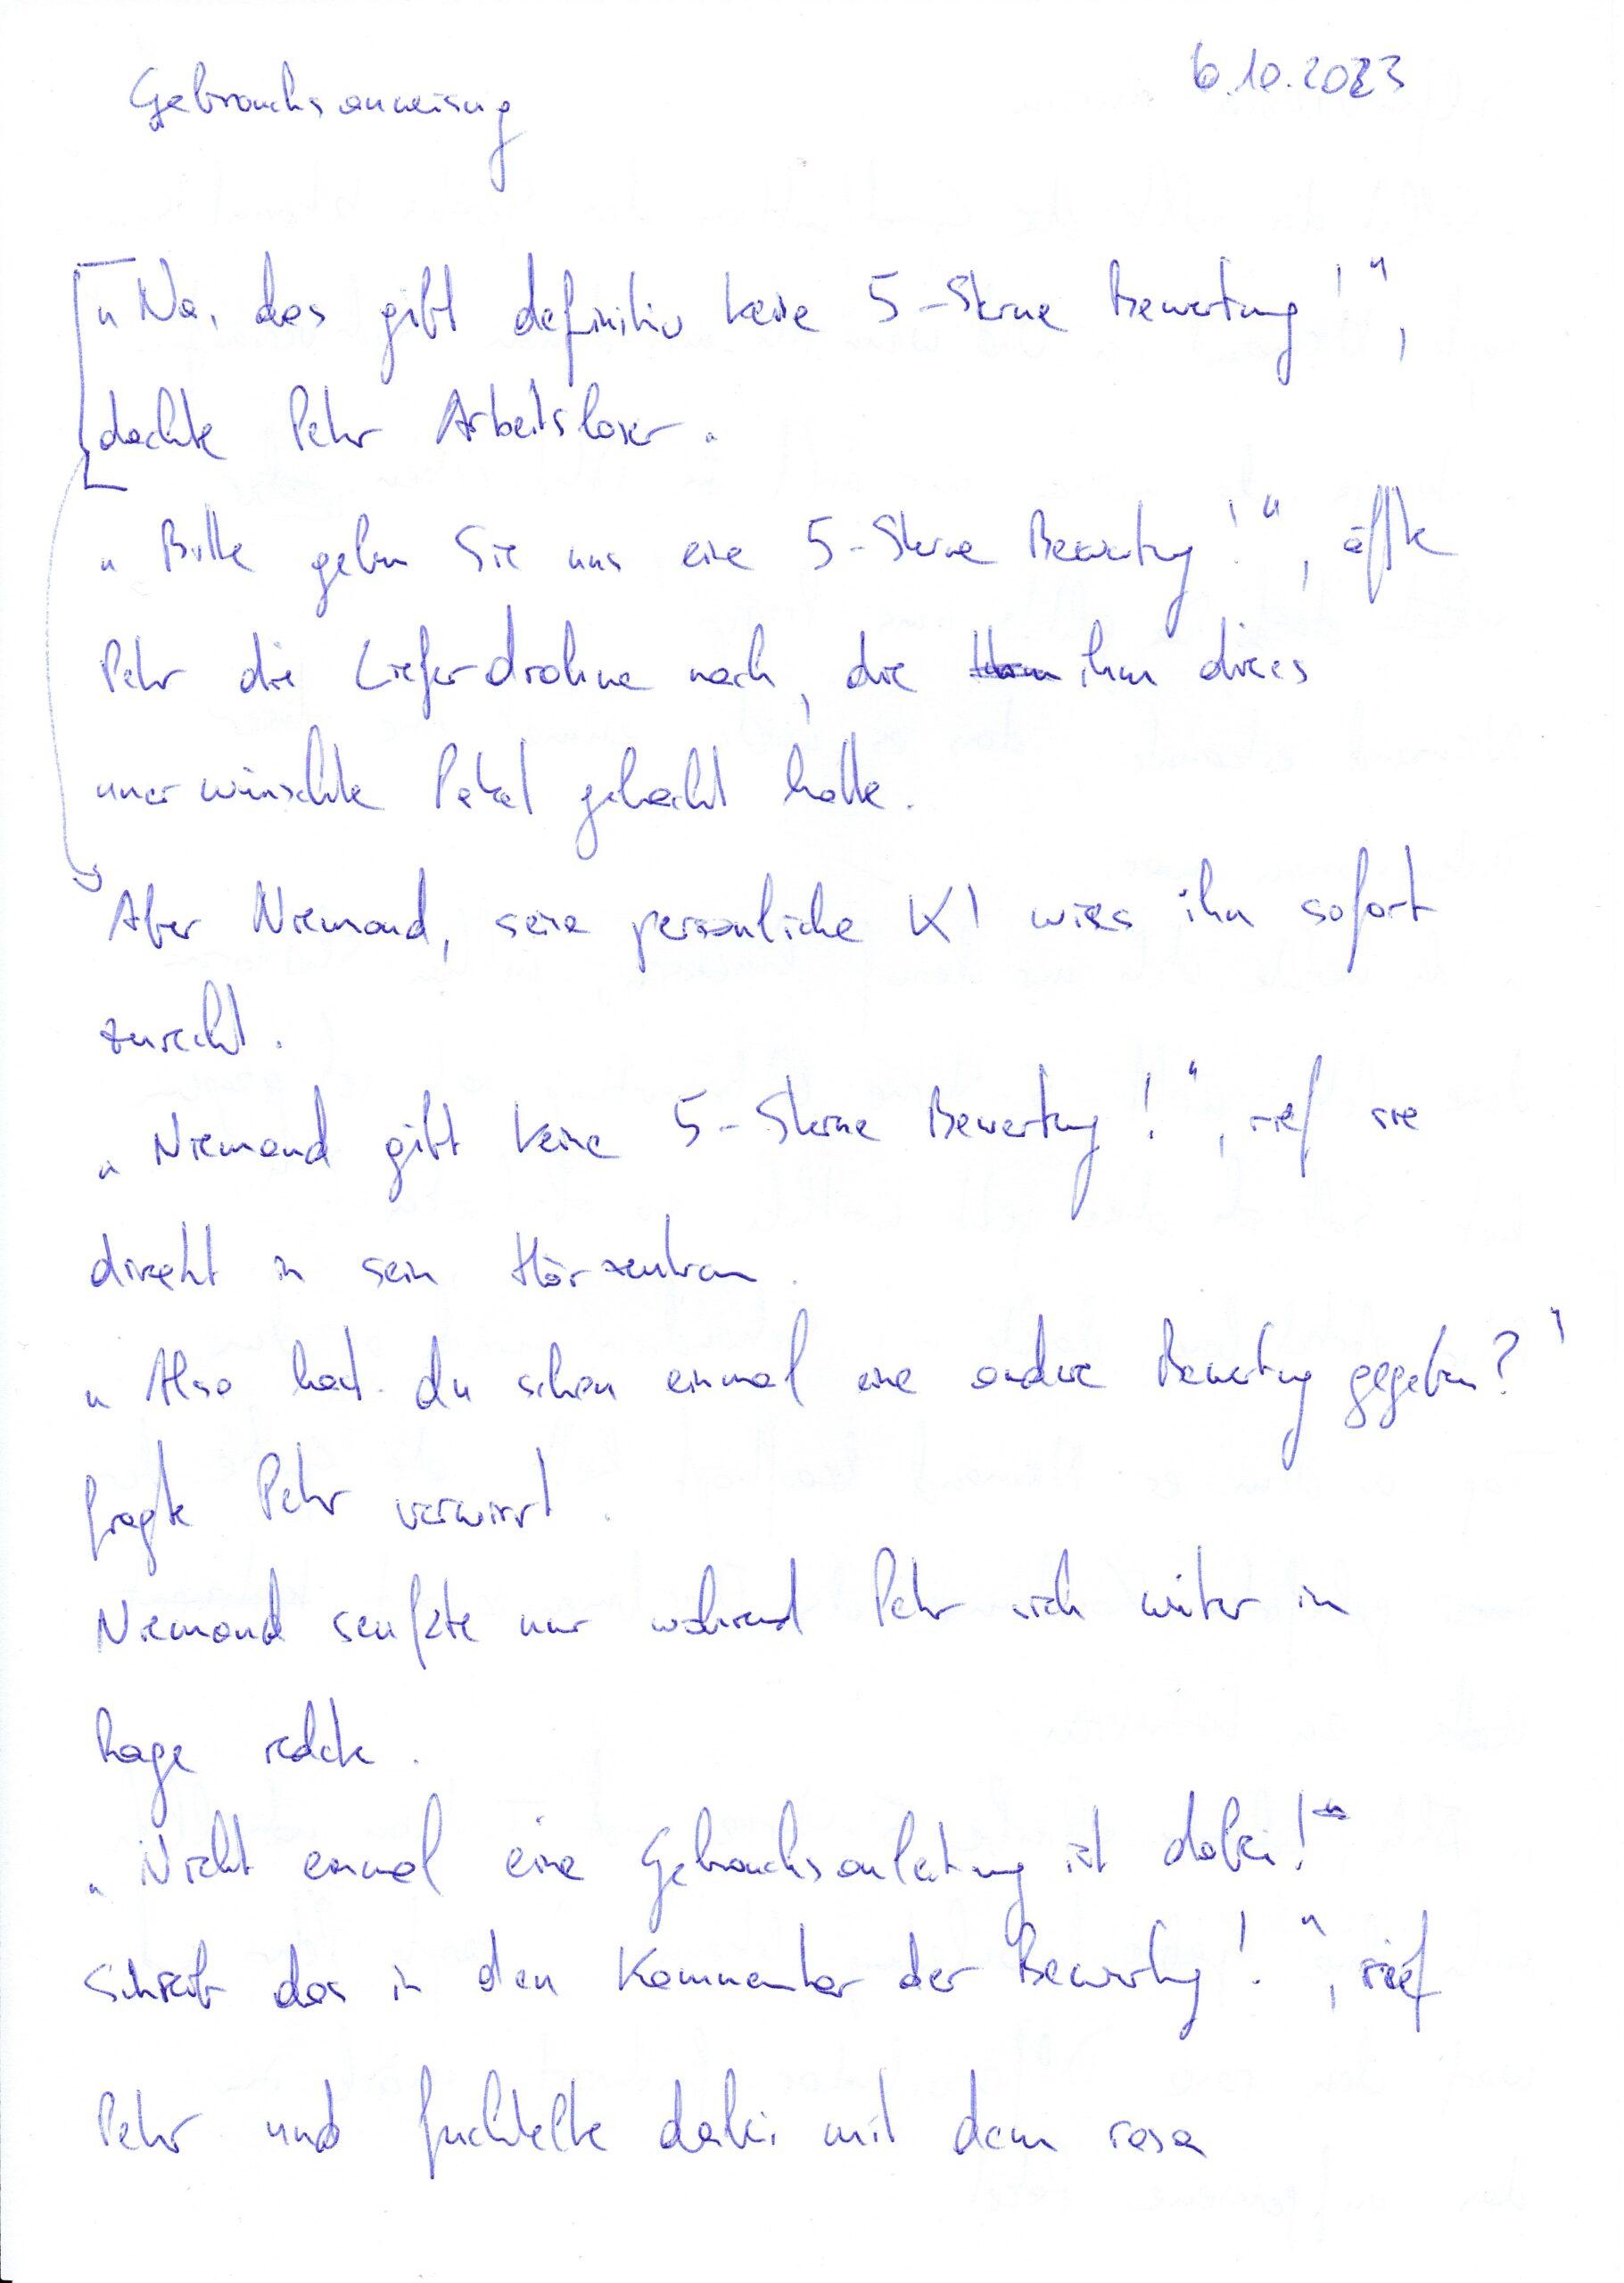 Gebrauchsanweisung
6.10.2023
„Na, das gibt definitiv keine 5-Sterne Bewertung!",
dachte Peter Arbeitsloser.
„Bitte geben Sie uns eine 5-Sterne Bewertung!", äffte
Peter die Lieferdrohne nach, die ihm dieses
unerwünschte Paket gebracht hatte.
Aber Niemand, seine persönliche KI wies ihn sofort
zurecht.
„Niemand gibt keine 5-Sterne Bewertung!", rief sie
direkt in sein Hörzentrum.
„Also hast du schon einmal eine andere Bewertung gegeben?"
fragte Peter verwirrt.
Niemand seufzte nur während Peter sich weiter in
Rage redete.
„Nicht einmal eine Gebrauchsanleitung ist dabei!
Schreib das in den Kommentar der Bewertung!", rief
Peter und fuchtelte dabei mit dem rosa